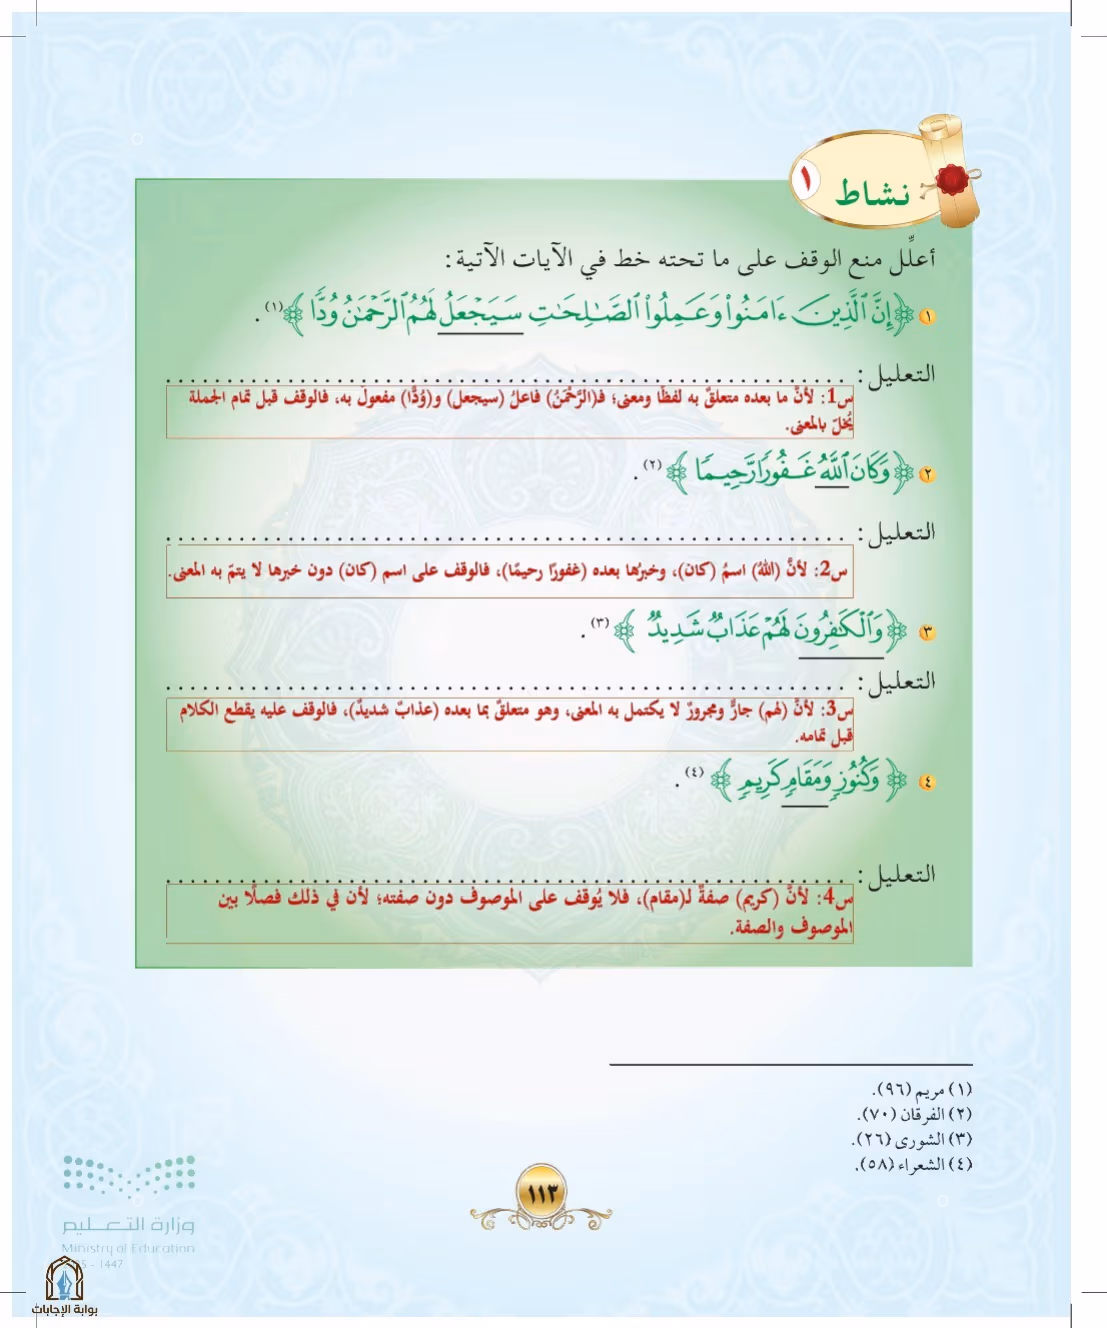 نشاط ١
أعلِّل منع الوقف على ما تحته خط في الآيات الآتية:
١ ﴿إِنَّ ٱلَّذِينَ ءَامَنُوا۟ وَعَمِلُوا۟ ٱلصَّـٰلِحَـٰتِ سَيَجۡعَلُ لَهُمُ ٱلرَّحۡمَـٰنُ وُدًّا﴾ (١).
التعليل: ..........................................................
س1: لأنَّ ما بعده متعلقٌ به لفظًا ومعنى؛ فـ(الرَّحْمَٰنُ) فاعلُ (سيجعل) و(وُدًّا) مفعولٌ به، فالوقف قبل تمام الجملة
يُخلّ بالمعنى.
٢ ﴿وَكَانَ ٱللَّهُ غَفُورًا رَّحِيمًا﴾ (٢).
التعليل: ..........................................................
س2: لأنَّ (اللهُ) اسمُ (كان)، وخبرُها بعده (غفورًا رحيمًا)، فالوقف على اسم (كان) دون خبرها لا يتمّ به المعنى.
٣ ﴿وَٱلۡكَـٰفِرُونَ لَهُمۡ عَذَابٌ شَدِيدٌ﴾ (٣).
التعليل: ..........................................................
س3: لأنَّ (لهم) جارٌّ ومجرورٌ لا يكتمل به المعنى، وهو متعلقٌ بما بعده (عذابٌ شديدٌ)، فالوقف عليه يقطع الكلام
قبل تمامه.
٤ ﴿وَكُنُوزٍ وَمَقَامٍ كَرِيمٍ﴾ (٤).
التعليل: ..........................................................
س4: لأنَّ (كريم) صفةٌ لـ(مقام)، فلا يُوقف على الموصوف دون صفته؛ لأن في ذلك فصلًا بين
الموصوف والصفة.
(١) مريم (٩٦).
(٢) الفرقان (٧٠).
(٣) الشورى (٢٦).
(٤) الشعراء (٥٨).
١١٣
وزارة التعليم
Ministry of Education
- 1447
بوابة الإجابات